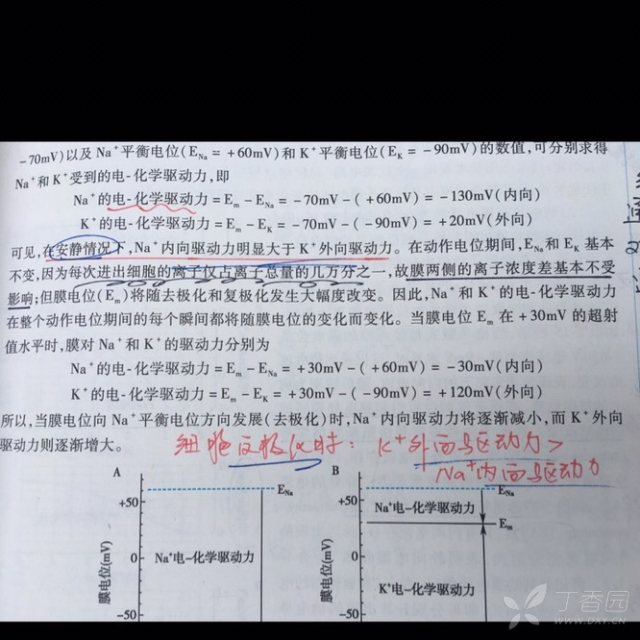 -70mV)以及 Na⁺平衡电位(E_Na = +60mV)和 K⁺平衡电位(E_K = -90mV)的数值,可分别求得
Na⁺和 K⁺受到的电-化学驱动力,即
Na⁺的电-化学驱动力 = E_m - E_Na = -70mV - ( +60mV) = -130mV(内向)
K⁺的电-化学驱动力 = E_m - E_K = -70mV - ( -90mV) = +20mV(外向)
可见,在安静情况下,Na⁺内向驱动力明显大于 K⁺外向驱动力。在动作电位期间,E_Na和 E_K 基本
不变,因为每次进出细胞的离子仅占离子总量的几万分之一,故膜两侧的离子浓度差基本不受
影响;但膜电位(E_m)将随去极化和复极化发生大幅度改变。因此,Na⁺和 K⁺的电-化学驱动力
在整个动作电位期间的每个瞬间都将随膜电位的变化而变化。当膜电位 E_m 在 +30mV 的超射
值水平时,膜对 Na⁺和 K⁺的驱动力分别为
Na⁺的电-化学驱动力 = E_m - E_Na = +30mV - ( +60mV) = -30mV(内向)
K⁺的电-化学驱动力 = E_m - E_K = +30mV - ( -90mV) = +120mV(外向)
所以,当膜电位向 Na⁺平衡电位方向发展(去极化)时,Na⁺内向驱动力将逐渐减小,而 K⁺外向
驱动力则逐渐增大。
细胞反极化时: K⁺外向驱动力>
Na⁺内向驱动力
A
B
E_Na
E_Na
+50
+50
Na⁺电-化学驱动力
E_m
膜电位(mV)
膜电位(mV)
0
0
Na⁺电-化学驱动力
K⁺电-化学驱动力
-50
-50
丁香园
WWW.DXY.CN